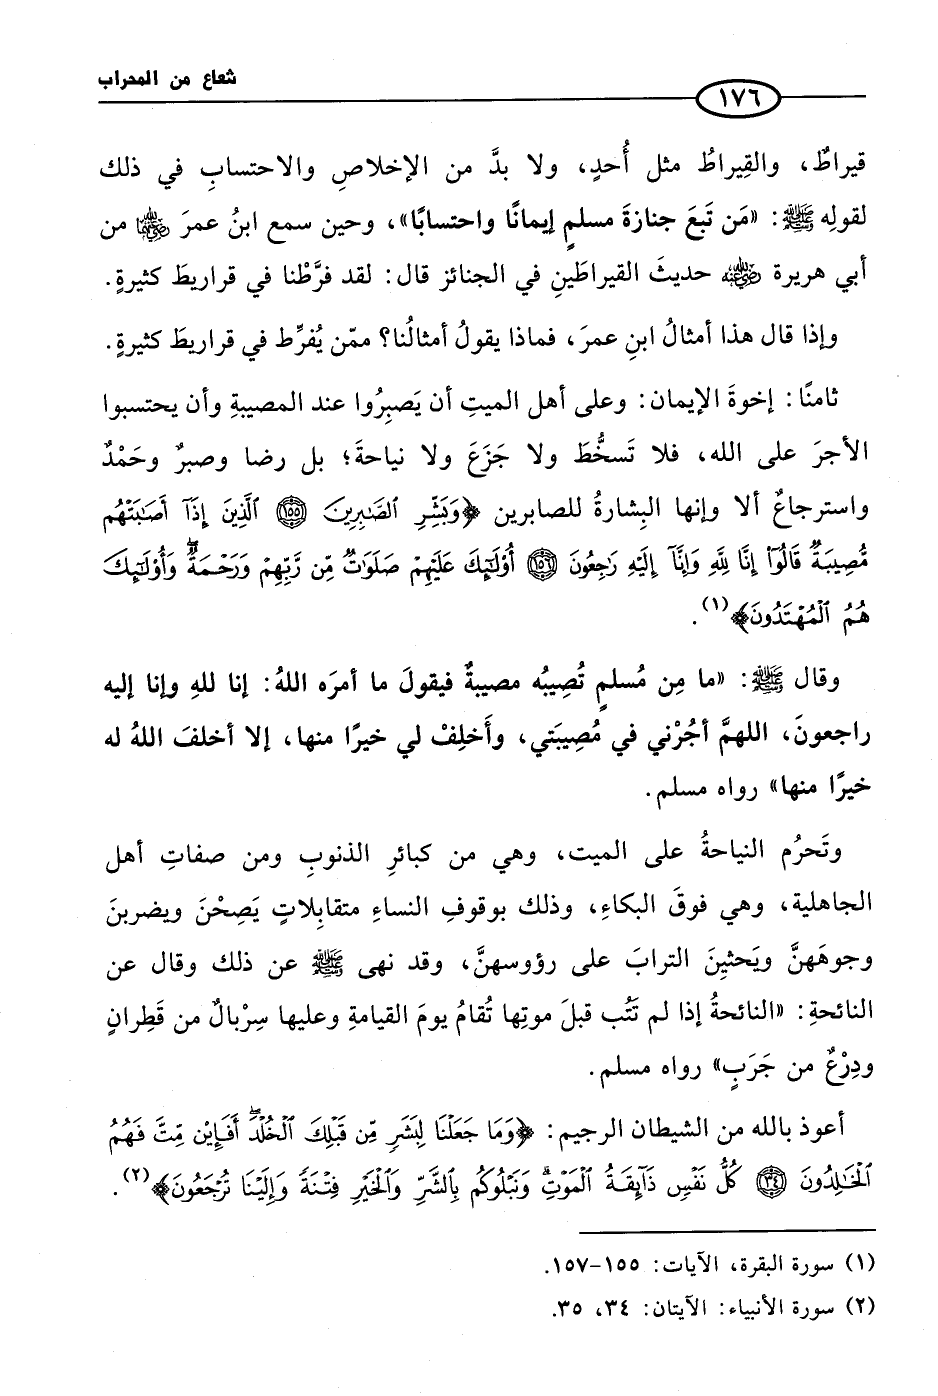 شعاع من المحراب
١٧٦
قيراطٌ، والقِيراطُ مثل أُحدٍ، ولا بدَّ من الإخلاصِ والاحتسابِ في ذلك
لقولِه ﷺ: «مَن تَبعَ جنازةَ مسلمٍ إيمانًا واحتسابًا»، وحين سمع ابنُ عمرَ رضي الله عنهما من
أبي هريرة رضي الله عنه حديثَ القيراطَينِ في الجنائز قال: لقد فرَّطْنا في قراريطَ كثيرةٍ.
وإذا قال هذا أمثالُ ابنِ عمرَ، فماذا يقولُ أمثالُنا؟ ممّن يُفرِّط في قراريطَ كثيرةٍ.
ثامنًا: إخوةَ الإيمان: وعلى أهل الميتِ أن يَصبِرُوا عند المصيبةِ وأن يحتسبوا
الأجرَ على الله، فلا تَسخُّطَ ولا جَزَعَ ولا نياحةَ؛ بل رضا وصبرٌ وحَمْدٌ
واسترجاعٌ ألا وإنها البِشارةُ للصابرين ﴿وَبَشِّرِ ٱلصَّٰبِرِينَ ١٥٥ ٱلَّذِينَ إِذَآ أَصَٰبَتۡهُم
مُّصِيبَةٞ قَالُوٓاْ إِنَّا لِلَّهِ وَإِنَّآ إِلَيۡهِ رَٰجِعُونَ ١٥٦ أُوْلَٰٓئِكَ عَلَيۡهِمۡ صَلَوَٰتٞ مِّن رَّبِّهِمۡ وَرَحۡمَةٞۖ وَأُوْلَٰٓئِكَ
هُمُ ٱلۡمُهۡتَدُونَ﴾(١).
وقال ﷺ: «ما مِن مُسلمٍ تُصِيبُه مصيبةٌ فيقولَ ما أمرَه اللهُ: إنا للهِ وإنا إليه
راجعونَ، اللهمَّ أجُرْني في مُصِيبَتي، وأَخلِفْ لي خيرًا منها، إلا أخلفَ اللهُ له
خيرًا منها» رواه مسلم.
وتَحرُم النياحةُ على الميت، وهي من كبائرِ الذنوبِ ومن صفاتِ أهل
الجاهلية، وهي فوقَ البكاءِ، وذلك بوقوفِ النساءِ متقابِلاتٍ يَصِحْنَ ويضربنَ
وجوهَهنَّ ويَحثِينَ الترابَ على رؤوسهنَّ، وقد نهى ﷺ عن ذلك وقال عن
النائحةِ: «النائحةُ إذا لم تَتُب قبلَ موتِها تُقامُ يومَ القيامةِ وعليها سِرْبالٌ من قَطِرانٍ
ودِرْعٌ من جَرَبٍ» رواه مسلم.
أعوذ بالله من الشيطان الرجيم: ﴿وَمَا جَعَلۡنَا لِبَشَرٖ مِّن قَبۡلِكَ ٱلۡخُلۡدَۖ أَفَإِيْن مِّتَّ فَهُمُ
ٱلۡخَٰلِدُونَ ٣٤ كُلُّ نَفۡسٖ ذَآئِقَةُ ٱلۡمَوۡتِۗ وَنَبۡلُوكُم بِٱلشَّرِّ وَٱلۡخَيۡرِ فِتۡنَةٗۖ وَإِلَيۡنَا تُرۡجَعُونَ﴾(٢).
(١) سورة البقرة، الآيات: ١٥٥-١٥٧.
(٢) سورة الأنبياء: الآيتان: ٣٤، ٣٥.